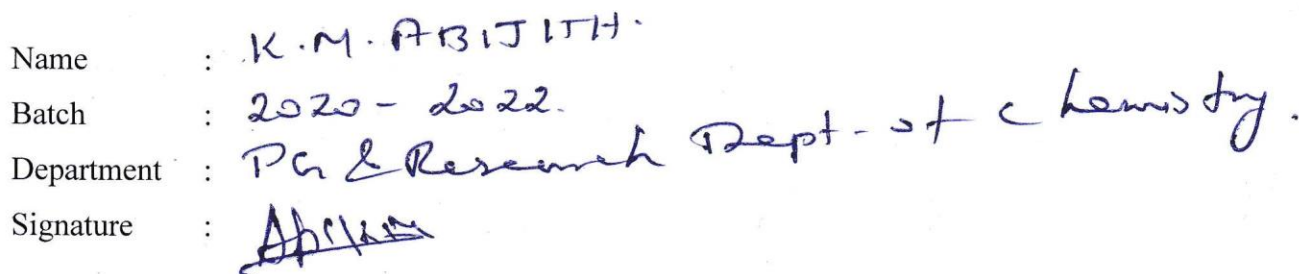 Name : K.M. ABIJITH.
Batch : 2020 - 2022.
Department : PG & Research Dept. of Chemistry.
Signature :